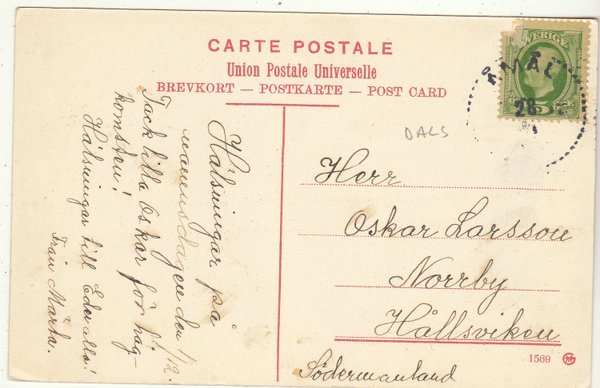 CARTE POSTALE
Union Postale Universelle
BREVKORT — POSTKARTE — POST CARD
SVERIGE
ÅMÅL
28
DALS
Hälsningar på
namnsdagen den 1/12.
Tack lilla Oskar för håg-
komsten!
Hälsningar till Eder alla!
Från Märta.
Herr
Oskar Larsson
Norrby
Hållsviken
Södermanland
1569